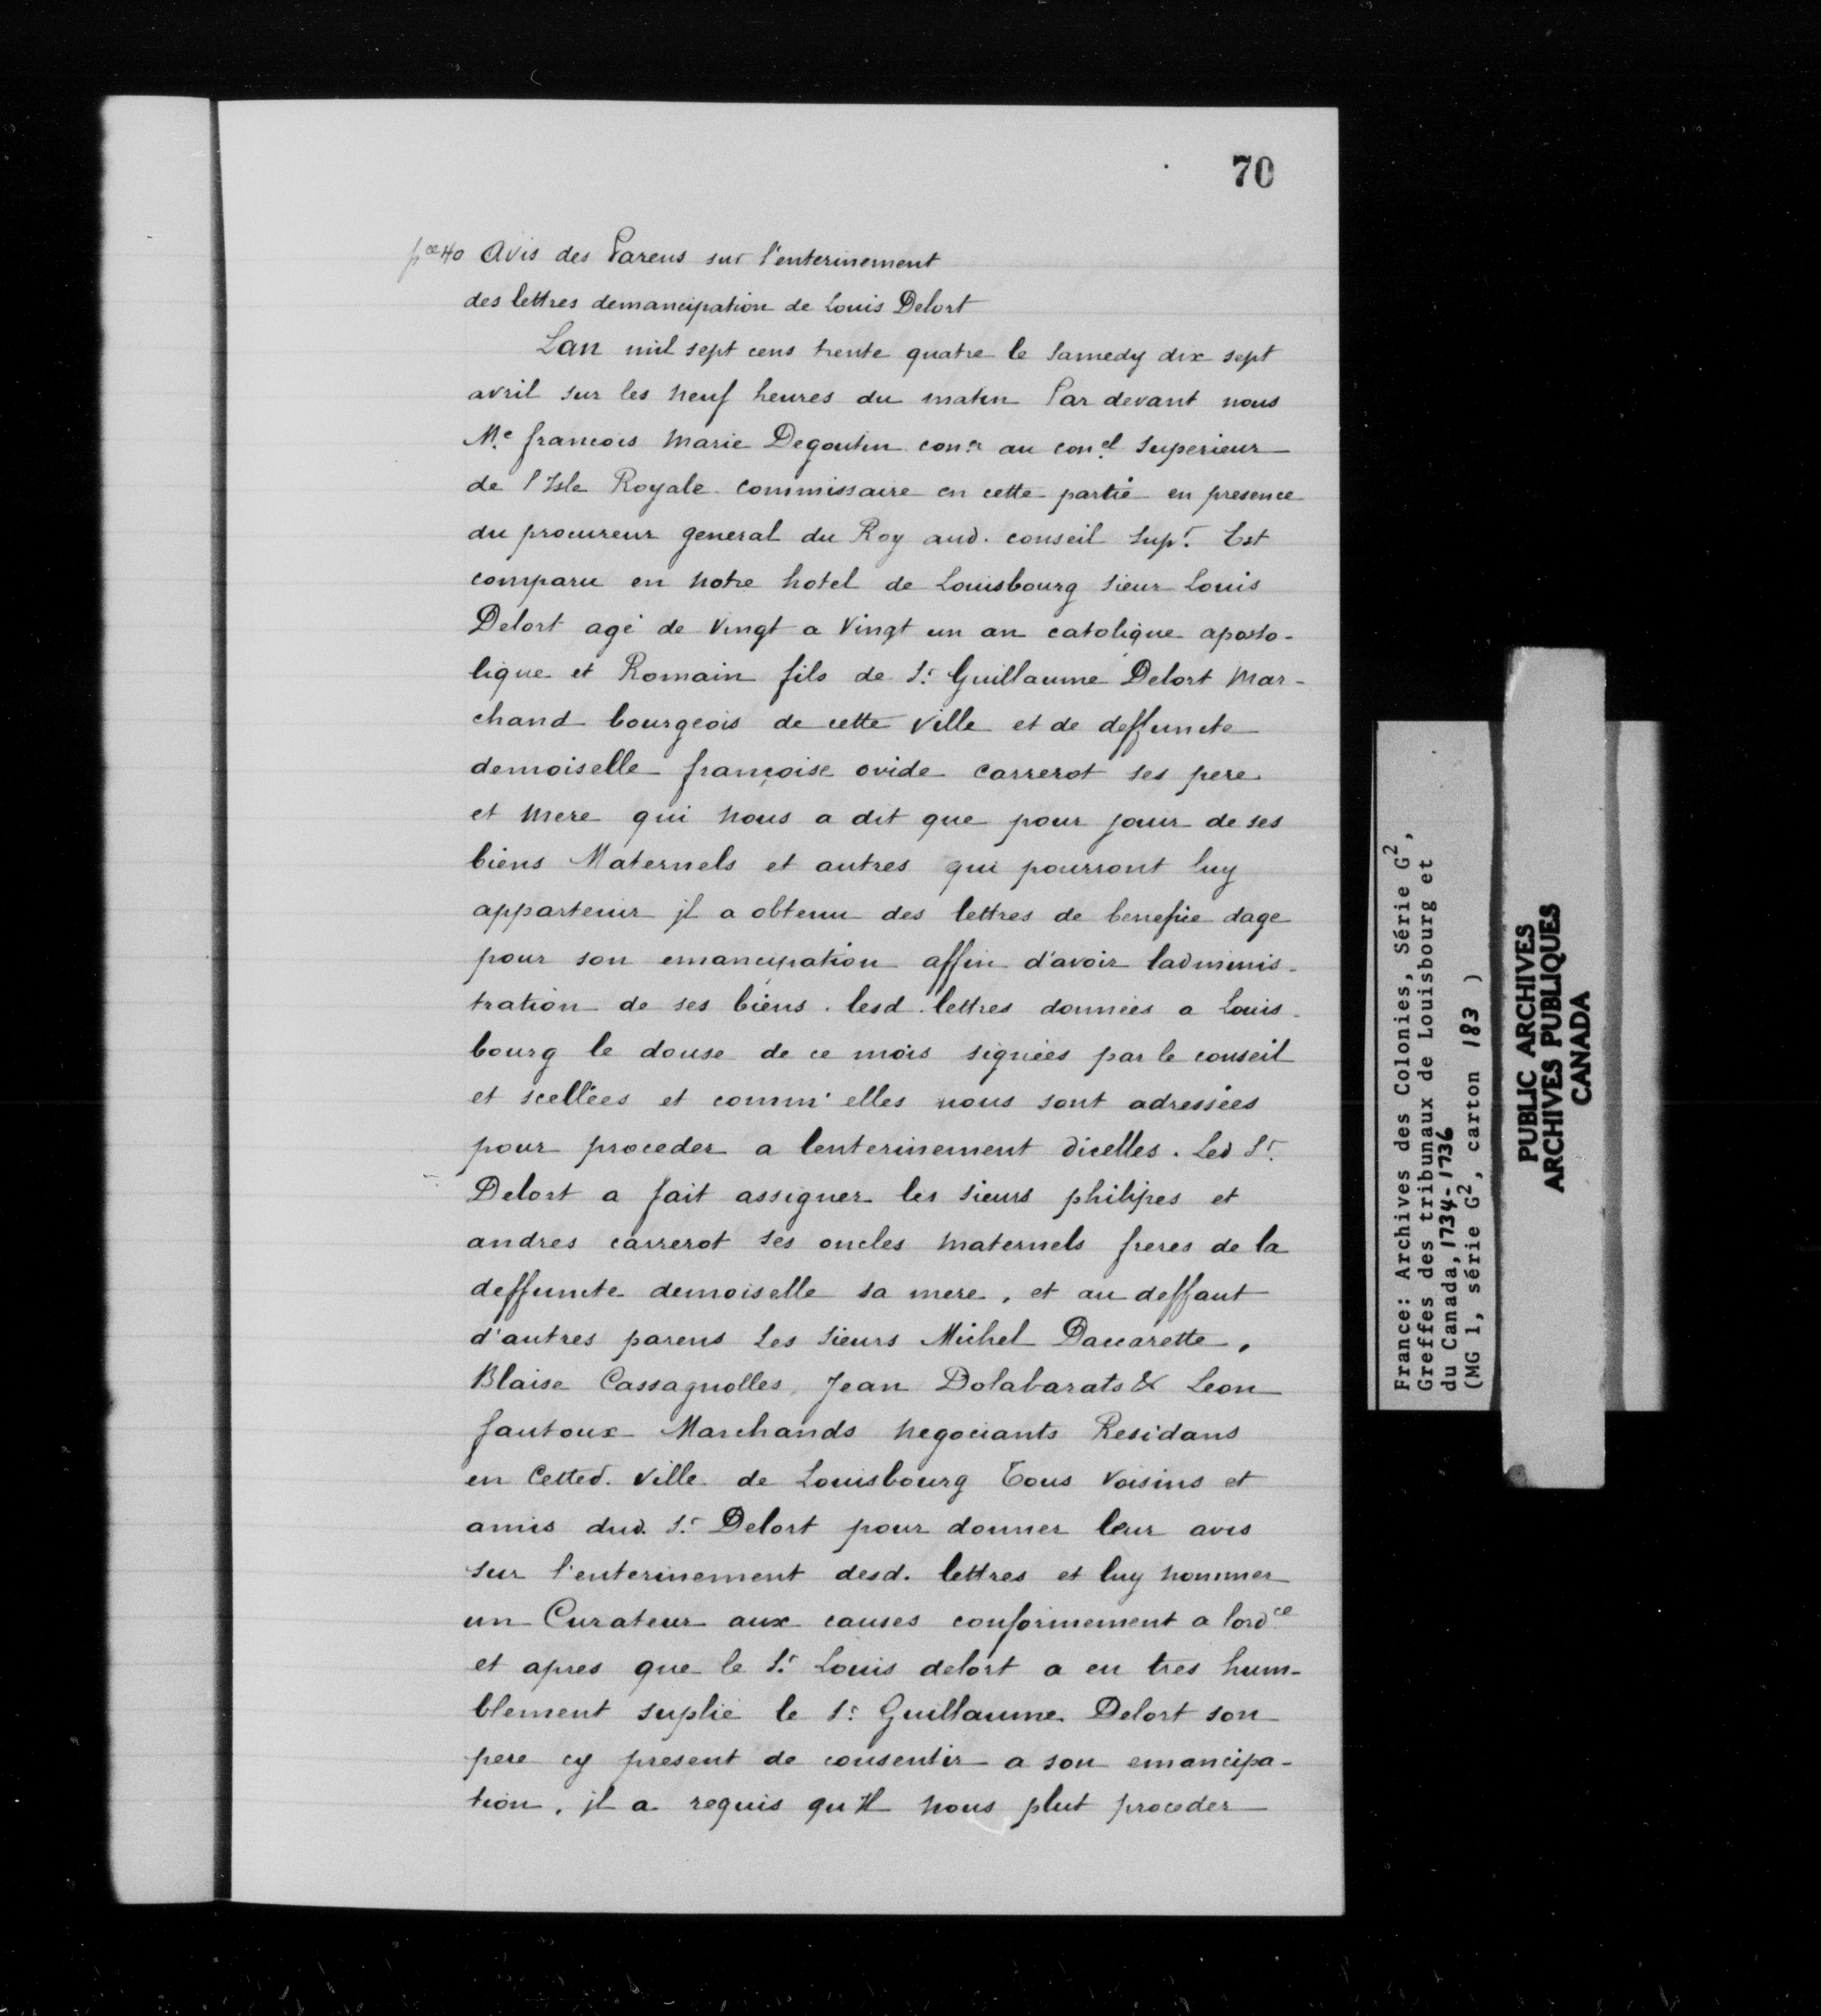 70
pce 40 Avis des Parens sur l'enterinement
des lettres demancipation de Louis Delort
Lan mil sept cens trente quatre le Samedy dix sept
avril sur les neuf heures du matin Par devant nous
Me. francois Marie Degoutin con.er au con.el Superieur
de l'Isle Royale commissaire en cette partie en presence
du procureur general du Roy aud. conseil Sup.r Est
comparu en notre hotel de Louisbourg Sieur Louis
Delort agé de Vingt a Vingt un an catolique aposto-
lique et Romain fils de S.r Guillaume Delort Mar-
chand bourgeois de cette Ville et de deffuncte
demoiselle françoise ovide carrerot ses pere
et Mere qui nous a dit que pour jouir de ses
biens Maternels et autres qui pourront luy
appartenir jl a obtenu des lettres de benefice dage
pour son emancipation affin d'avoir ladminis-
tration de ses biens. lesd. lettres données a Louis-
bourg le douse de ce mois signées par le conseil
et scellées et comm' elles nous sont adressées
pour proceder a lenterinement dicelles. Led S.r
Delort a fait assigner les sieurs philipes et
andres carrerot ses oncles maternels freres de la
deffuncte demoiselle sa mere, et au deffaut
d'autres parens Les Sieurs Michel Daccarette,
Blaise Cassagnolles, Jean Dolabarats & Leon
fautoux Marchands negociants Residans
en Cetted. Ville de Louisbourg Tous Voisins et
amis dud. S.r Delort pour donner leur avis
sur l'enterinement desd. lettres et luy nommer
un Curateur aux causes conformement a lordce
et apres que le S.r Louis delort a eu tres hum-
blement suplié le S.r Guillaume Delort son
pere cy present de consentir a son emancipa-
tion, jl a requis qu'Il nous plut proceder
France: Archives des Colonies, Série G2,
Greffes des tribunaux de Louisbourg et
du Canada, 1734-1736
(MG 1, série G2, carton 183 )
PUBLIC ARCHIVES
ARCHIVES PUBLIQUES
CANADA